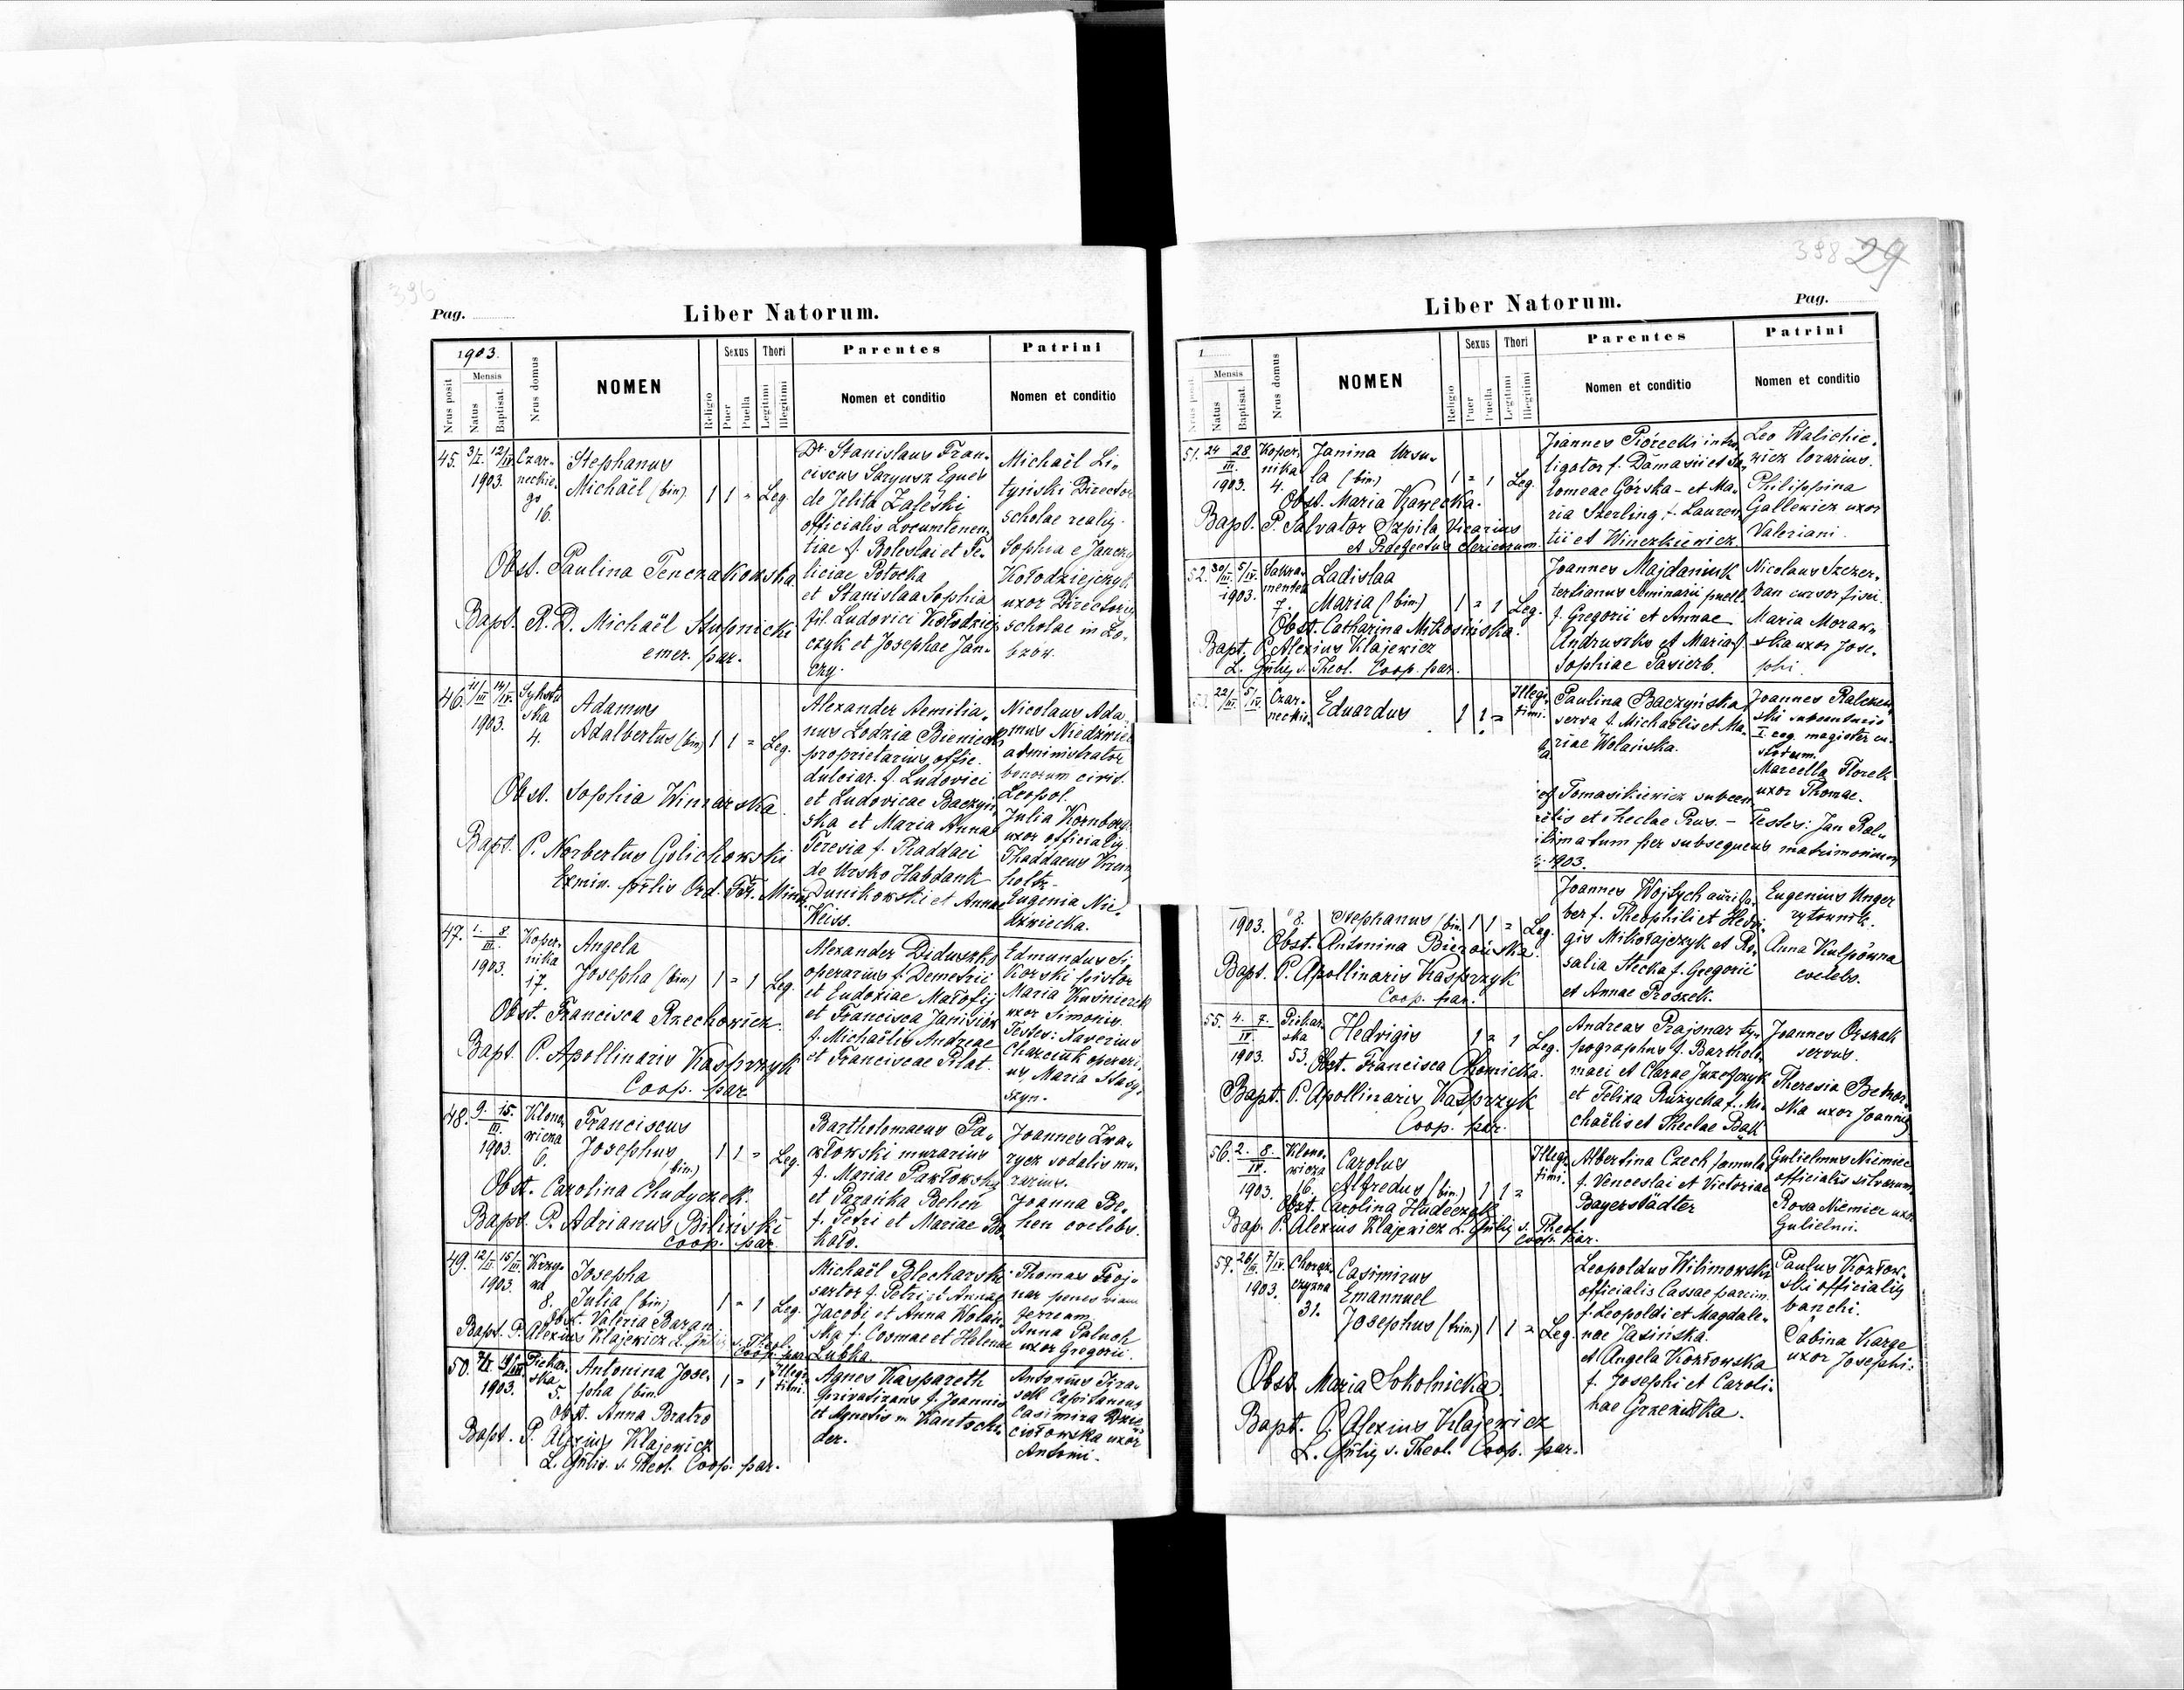 396
Pag.
Liber Natorum.
1903.
Nrus posit
Mensis
Natus
Baptisat.
Nrus domus
NOMEN
Religio
Sexus
Puer
Puella
Thori
Legitimi
Illegitimi
Parentes
Nomen et conditio
Patrini
Nomen et conditio
45.
1903.
Czar-
neckie-
go
16.
Stephanus
Michaël (bin)
1 1 = Leg.
Obst. Paulina Tenczakowska.
Bapt. R. D. Michaël Stupnicki
emer. par.
Dr. Stanislaus Fran-
ciscus Saryusz Eques
de Jelita Zaleski
officialis Locumtenen-
tiae f. Boleslai et Fe-
liciae Potocka
et Stanislaa Sophia
fil. Ludovici Kołodziej-
czyk et Josephae Jan-
czy.
Michaël Li-
tyński Director
scholae realis.
Sophia e Janczy
Kołodziejczyk
uxor Directoris
scholae in
46.
11/III 14/IV.
1903.
Sykstu
ska
4.
Adamus
Adalbertus (bin)
1 1 = Leg.
Obst. Sophia Winnarska.
Bapt. P. Norbertus Golichowski
Exmin. Ord. Min.
Alexander Aemilia-
nus Lodzia Bieniecki
proprietarius offic.
dulciar. f. Ludovici
et Ludovicae Baczyń-
ska et Maria Anna
Teresia f. Thaddaei
de Ursko Habdank
Dunikowski et Annae
Weiss.
Nicolaus Ada-
mus Niedzwie
administrator
bonorum civit.
Leopol.
Julia Kornberg
uxor officialis.
Thaddaeus
Eugenia Nie-
dzwiecka.
47.
1. 8.
III.
1903.
Koper-
nika
17.
Angela
Josepha (bin)
1 = 1 Leg.
Obst. Francisca Rzechowicz.
Bapt. P. Apollinaris Kasprzyk
Coop. par.
Alexander Diduszko
operarius f. Demetrii
et Eudoxiae Matofij
et Francisca Janisiów
f. Michaëlis Andreae
et Franciscae Pilat.
Edmundus Si-
korski pistor
Maria Kuśnierzek
uxor Simonis.
Testes: Xaverius
Charciuk operari-
us, Maria
szyn.
48.
9. 15.
III.
1903.
Klono-
wicza
6.
Franciscus
Josephus
(bin)
1 1 = Leg.
Obst. Carolina Chudyczek.
Bapt. P. Adrianus Biliński
coop. par.
Bartholomaeus Pa-
włowski murarius
f. Mariae Pawłowska
et Parańka Behen
f. Petri et Mariae Bo-
kało.
Joannes Zwa-
rycz sodalis mu-
rarius.
Joanna Be-
hen coelebs.
49.
1903.
Krzy-
wa
8.
Josepha
Julia (bin)
1 = 1 Leg.
Obst. Valeria Baran
Bapt. P. Alexius Klajewicz L. Gulij s. Theol.
Coop. par.
Michaël Blecharski
sartor f. Petri et Annae
Jacobi et Anna Wolań-
ska f. Cosmae et Helenae
Lubka.
Thomas Troj-
nar penes viam
ferream.
Anna Paluch
uxor Gregorii.
50.
1903.
Piekar-
ska
5.
Antonina Jose-
pha (bin.
1 = 1
Illegi-
timi.
Obst. Anna Bratro
Bapt. P. Alexius Klajewicz
L. Gulij. s. Theol. Coop. par.
Agnes Kaspareth
privatizans f. Joannis
et Agnetis
der.
Antonius
Capitaneus
Casimira
ciołowska uxor
Antonii.
398 29
Liber Natorum.
Pag.
1
Nrus posit
Mensis
Natus
Baptisat.
Nrus domus
NOMEN
Religio
Sexus
Puer
Puella
Thori
Legitimi
Illegitimi
Parentes
Nomen et conditio
Patrini
Nomen et conditio
51.
24 28
III.
1903
Koper-
nika
4.
Janina Ursu-
la (bin)
1 = 1 Leg.
Obst. Maria Kawecka.
Bapt. P. Salvator Szpila Vicarius
et Praefectus clericorum.
Joannes Piórecki intro-
ligator f. Damasii et Sa-
lomeae Górska - et Ma-
ria Szerling f. Lauren-
tii et Winczkiewicz.
Leo Walichie-
wicz lorarius.
Philippina
Gallewicz uxor
Valeriani.
52.
30/III. 5/IV.
1903.
Sakra-
mentek
7.
Ladislaa
Maria (bin)
1 = 1 Leg.
Obst. Catharina Mikosińska.
Bapt. P. Alexius Klajewicz
L. Gulij s. Theol. Coop. par.
Joannes Majdaniuk
tertianus Seminarii puell.
f. Gregorii et Annae
Andruszko et Maria f.
Sophiae Pasierb.
Nicolaus Szczer-
ban cursor fisci.
Maria Moraw-
ska uxor Jose-
phi.
53.
22/III. 5/IV.
Czar-
neckie
Eduardus
1 1 =
Illegi-
timi.
Paulina Baczyńska
serva f. Michaëlis et Ma-
riae Wolańska.
Joannes Ralczew
ski
I. leg. magister cu-
stodum.
Marcella Florek
uxor Thomae.
Tomasikiewicz
et Theclae Prus. - Testes: Jan Ral-
per subsequens matrimonium
1903.
1903.
8.
Stephanus (bin.
1 1 = Leg.
Obst. Antonina Bierońska.
Bapt. P. Apollinaris Kasprzyk
Coop. par.
Joannes Wojtych aurifa-
ber f. Theophili et Hedvi-
gis Mikołajczyk et Ro-
salia Stecka f. Gregorii
et Annae Proszek.
Eugenius Unger
rytownik.
Anna Kulpówna
coelebs.
55.
4. 7.
IV.
1903.
Piekar-
ska
53.
Hedvigis
1 = 1 Leg.
Obst. Francisca Chomicka.
Bapt. P. Apollinaris Kasprzyk
Coop. par.
Andreas Prajsnar ty-
pographus f. Bartholo-
maei et Clarae Juzefczyk
et Felixa Rużycka f. Mi-
chaëlis et Theclae Bałł
Joannes Orszak
servus.
Theresia Bednar-
ska uxor Joannis
56.
2. 8.
IV.
1903.
Klono-
wicza
16.
Carolus
Alfredus (bin.)
1 1 =
Illegi-
timi.
Obst. Carolina Hudeczek
Bap. P. Alexius Klajewicz L. Gulij s. Theol.
coop. par.
Albertina Czech famula
f. Venceslai et Victoriae
Bayerstädter
Gulielmus Niemiec
officialis silvarum
Rosa Niemiec uxor
Gulielmi.
57.
26/III. 7/IV.
1903.
Chorąż-
czyzna
31.
Casimirus
Emannuel
Josephus (trim.)
1 1 = Leg.
Obst. Maria Sokolnicka.
Bapt. P. Alexius Klajewicz
L. Gulij s. Theol. Coop. par.
Leopoldus Wilimowski
officialis Cassae parcim.
f. Leopoldi et Magdale-
nae Jasińska.
et Angela Kozłowska
f. Josephi et Caroli-
nae
Paulus Kozłow-
ski officialis
banchi.
Sabina Karge
uxor Josephi.